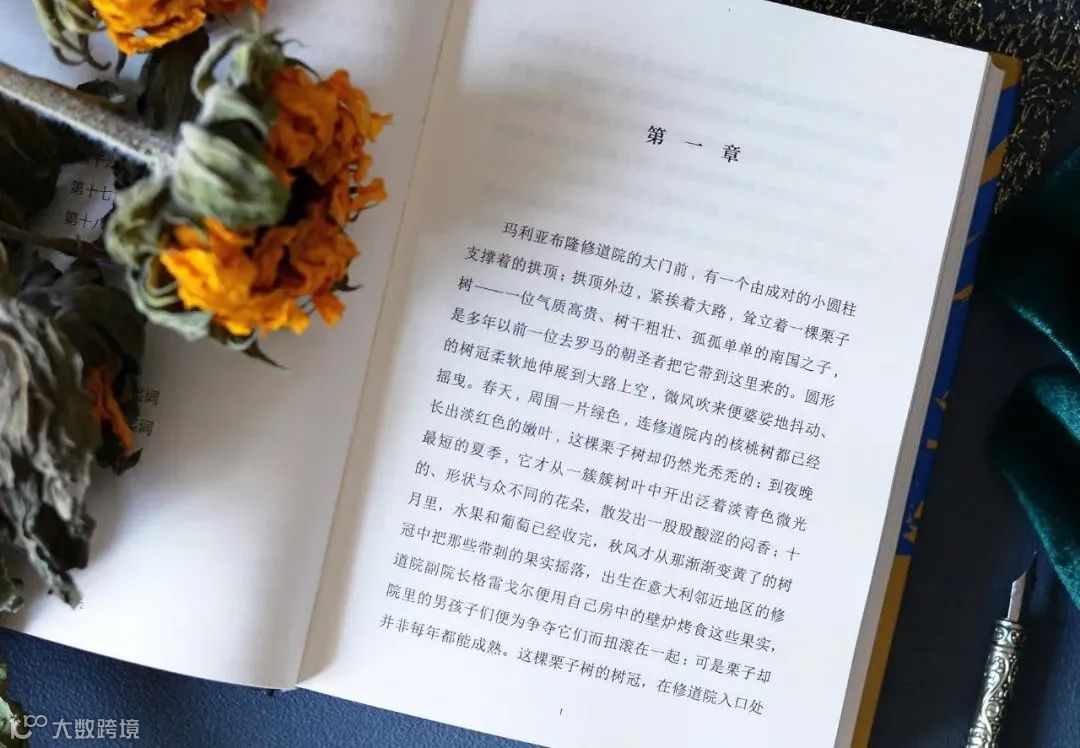 第十七
第十八
奖词
奖词
2
第一章
玛利亚布隆修道院的大门前，有一个由成对的小圆柱
支撑着的拱顶；拱顶外边，紧挨着大路，耸立着一棵栗子
树——一位气质高贵、树干粗壮、孤孤单单的南国之子，
是多年以前一位去罗马的朝圣者把它带到这里来的。圆形
的树冠柔软地伸展到大路上空，微风吹来便婆娑地抖动、
摇曳。春天，周围一片绿色，连修道院内的核桃树都已经
长出淡红色的嫩叶，这棵栗子树却仍然光秃秃的；到夜晚
最短的夏季，它才从一簇簇树叶中开出泛着淡青色微光
的、形状与众不同的花朵，散发出一股股酸涩的闷香；十
月里，水果和葡萄已经收完，秋风才从那渐渐变黄了的树
冠中把那些带刺的果实摇落，出生在意大利邻近地区的修
道院副院长格雷戈尔便用自己房中的壁炉烤食这些果实，
院里的男孩子们便为争夺它们而扭滚在一起；可是栗子却
并非每年都能成熟。这棵栗子树的树冠，在修道院入口处
1
大数跨境